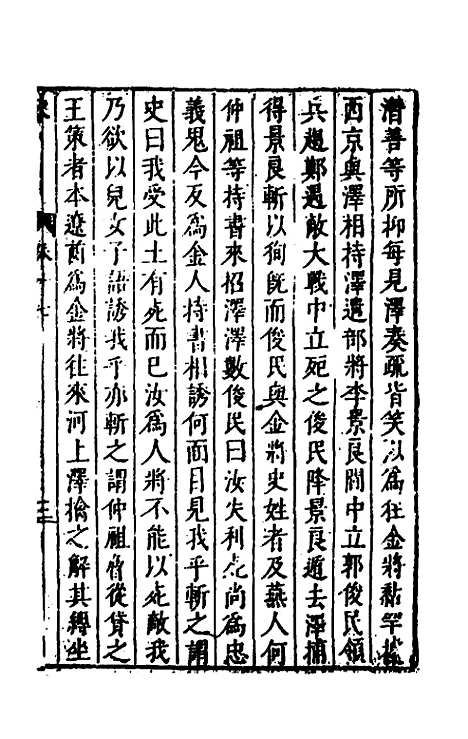 潛善等所抑每見澤奏疏皆笑以為狂金將黏罕據
西京與澤相持澤遣部將李景良閻中立郭俊民領
兵趨鄭遇敵大戰中立死之俊民降景良遁去澤捕
得景良斬以徇既而俊民與金將史姓者及燕人何
仲祖等持書來招澤澤數俊民曰汝失利死尚為忠
義鬼今反為金人持書相誘何面目見我乎斬之謂
史曰我受此土有死而已汝為人將不能以死敵我
乃欲以兒女子語誘我乎亦斬之謂仲祖脅從貸之
王策者本遼酋為金將往來河上澤擒之解其縛坐